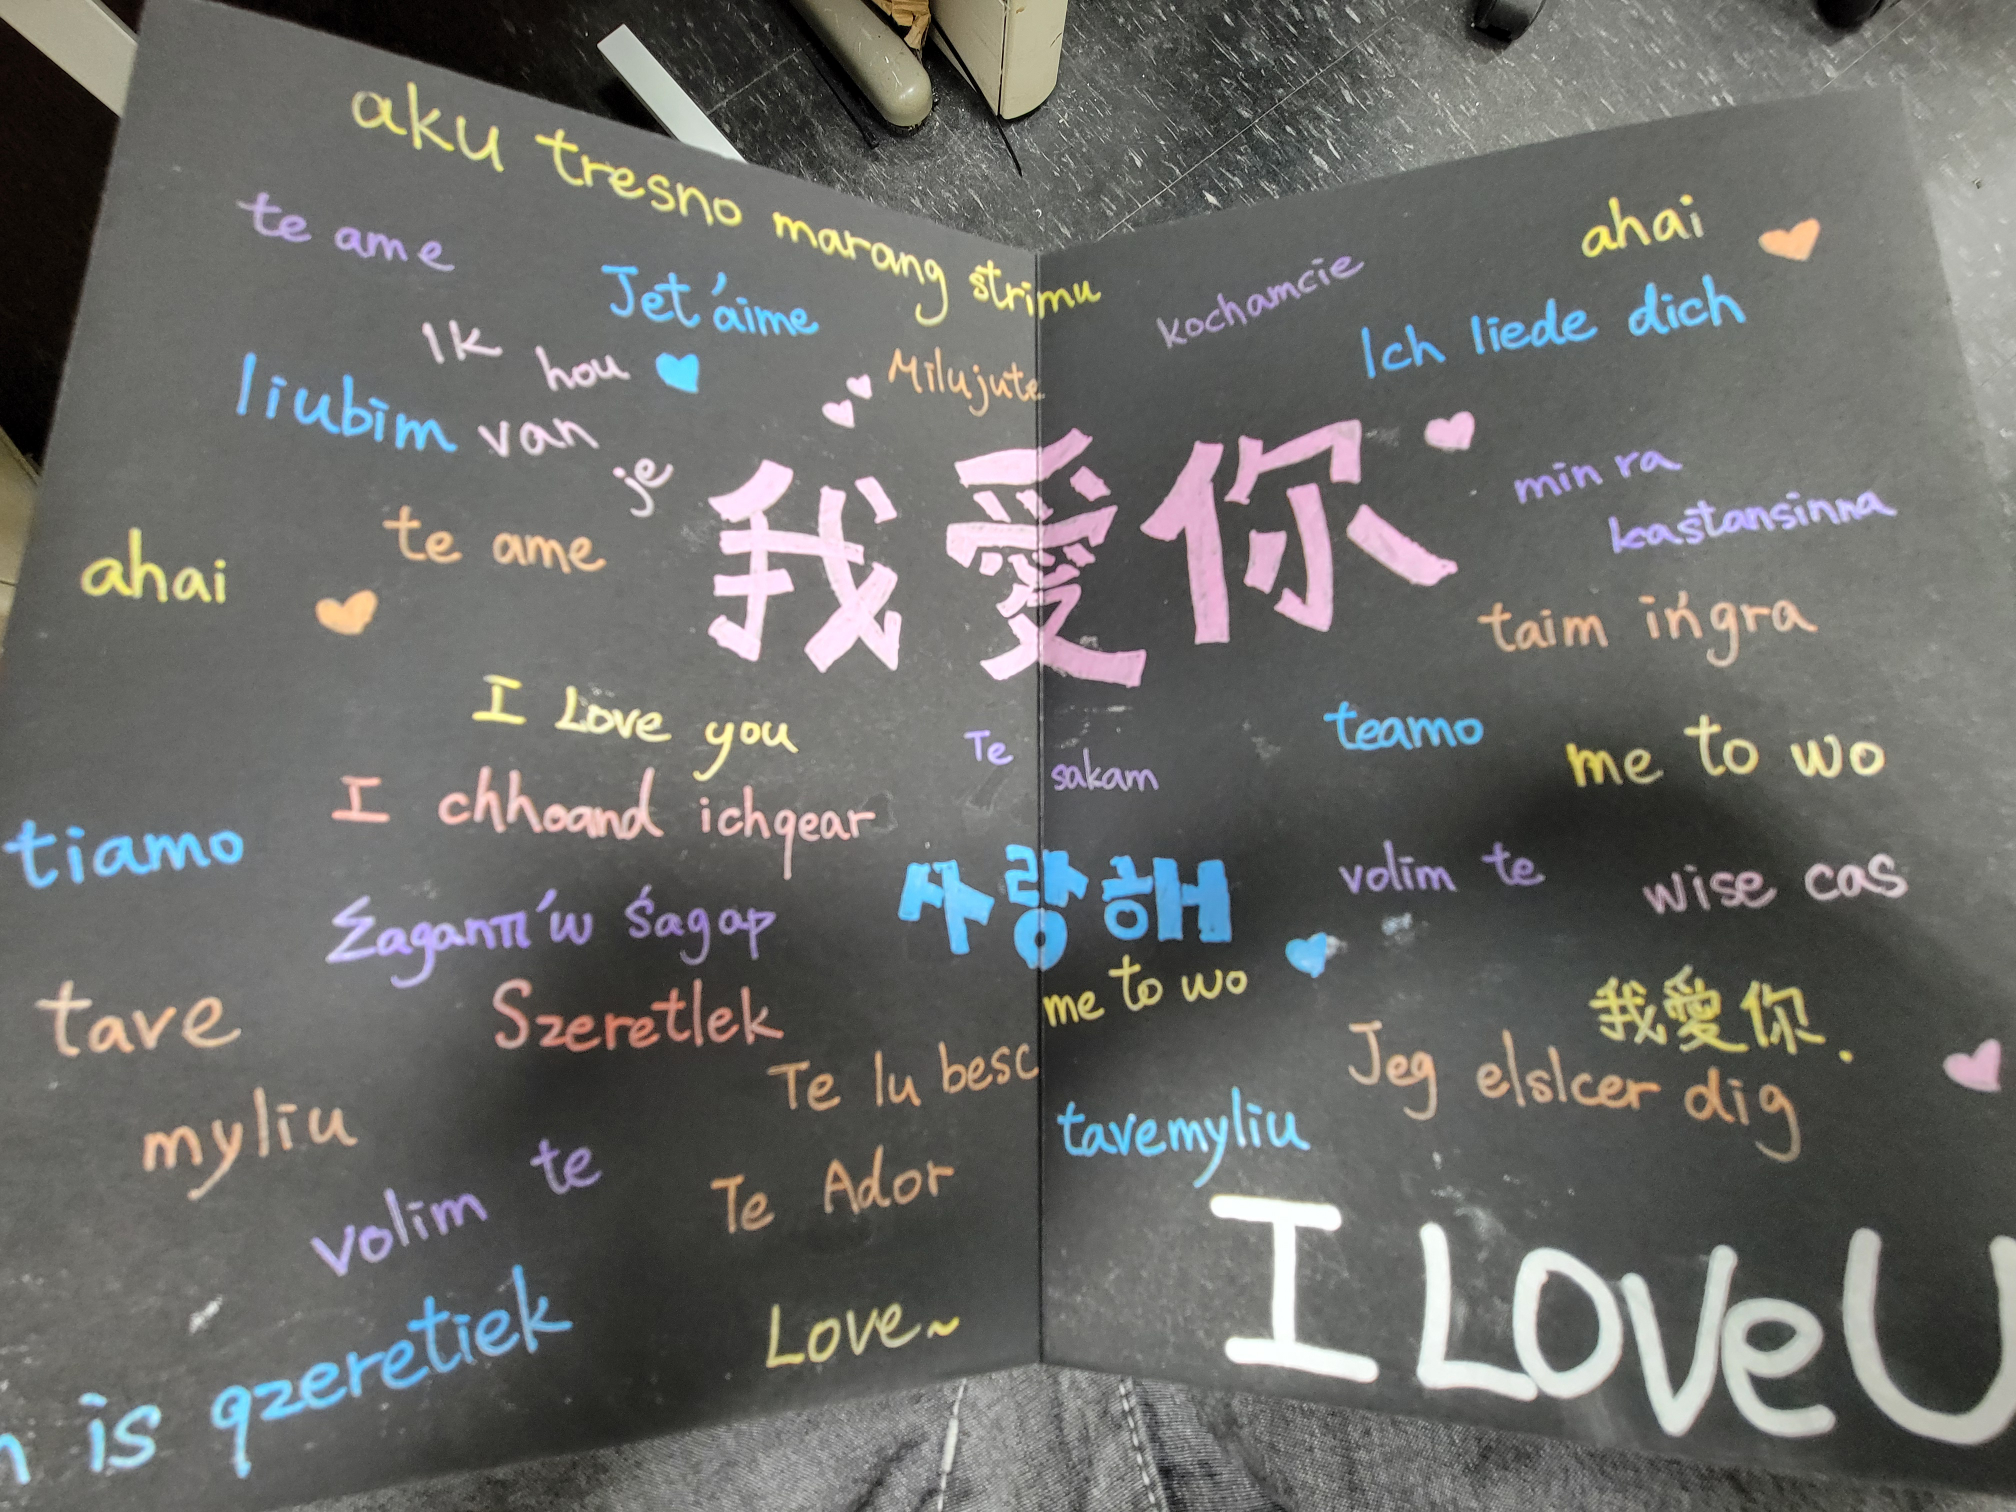 aku tresno marang strimu
te ame
Jet'aime
Ik hou van je
liubim
Milujute
kochamcie
ahai
Ich liede dich
我愛你
min ra kastansinna
ahai
te ame
taim ińgra
I Love you
Te sakam
teamo
me to wo
I chhoand ichqear
tiamo
사랑해
volim te
wise cas
Σaganπ'w śagap
me to wo
我愛你.
tave
Szeretlek
Te lu besc
Jeg elslcer dig
myliu
tavemyliu
volim te
Te Ador
I LOVe U
is qzeretiek
Love~